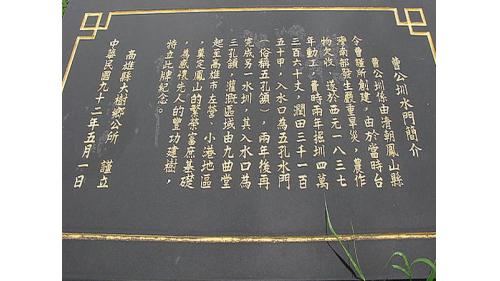 曹公圳水門簡介
曹公圳係由清朝鳳山縣
令曹謹所創建，由於當時台
灣南部發生嚴重旱災，農作
物欠收，遂於西元一八三七
年動工，費時兩年掘圳四萬
三百六十丈，潤田三千一百
五十甲，入水口為五孔水門
（俗稱五孔頭），兩年後再
完成另一水圳，其入水口為
三孔頭，灌溉區域由九曲堂
起至高雄市左營、小港地區
，奠定鳳山的繁榮富庶基礎
，為感懷先人的豐功建樹，
特立此碑紀念。
高雄縣大樹鄉公所　謹立
中華民國九十二年五月一日